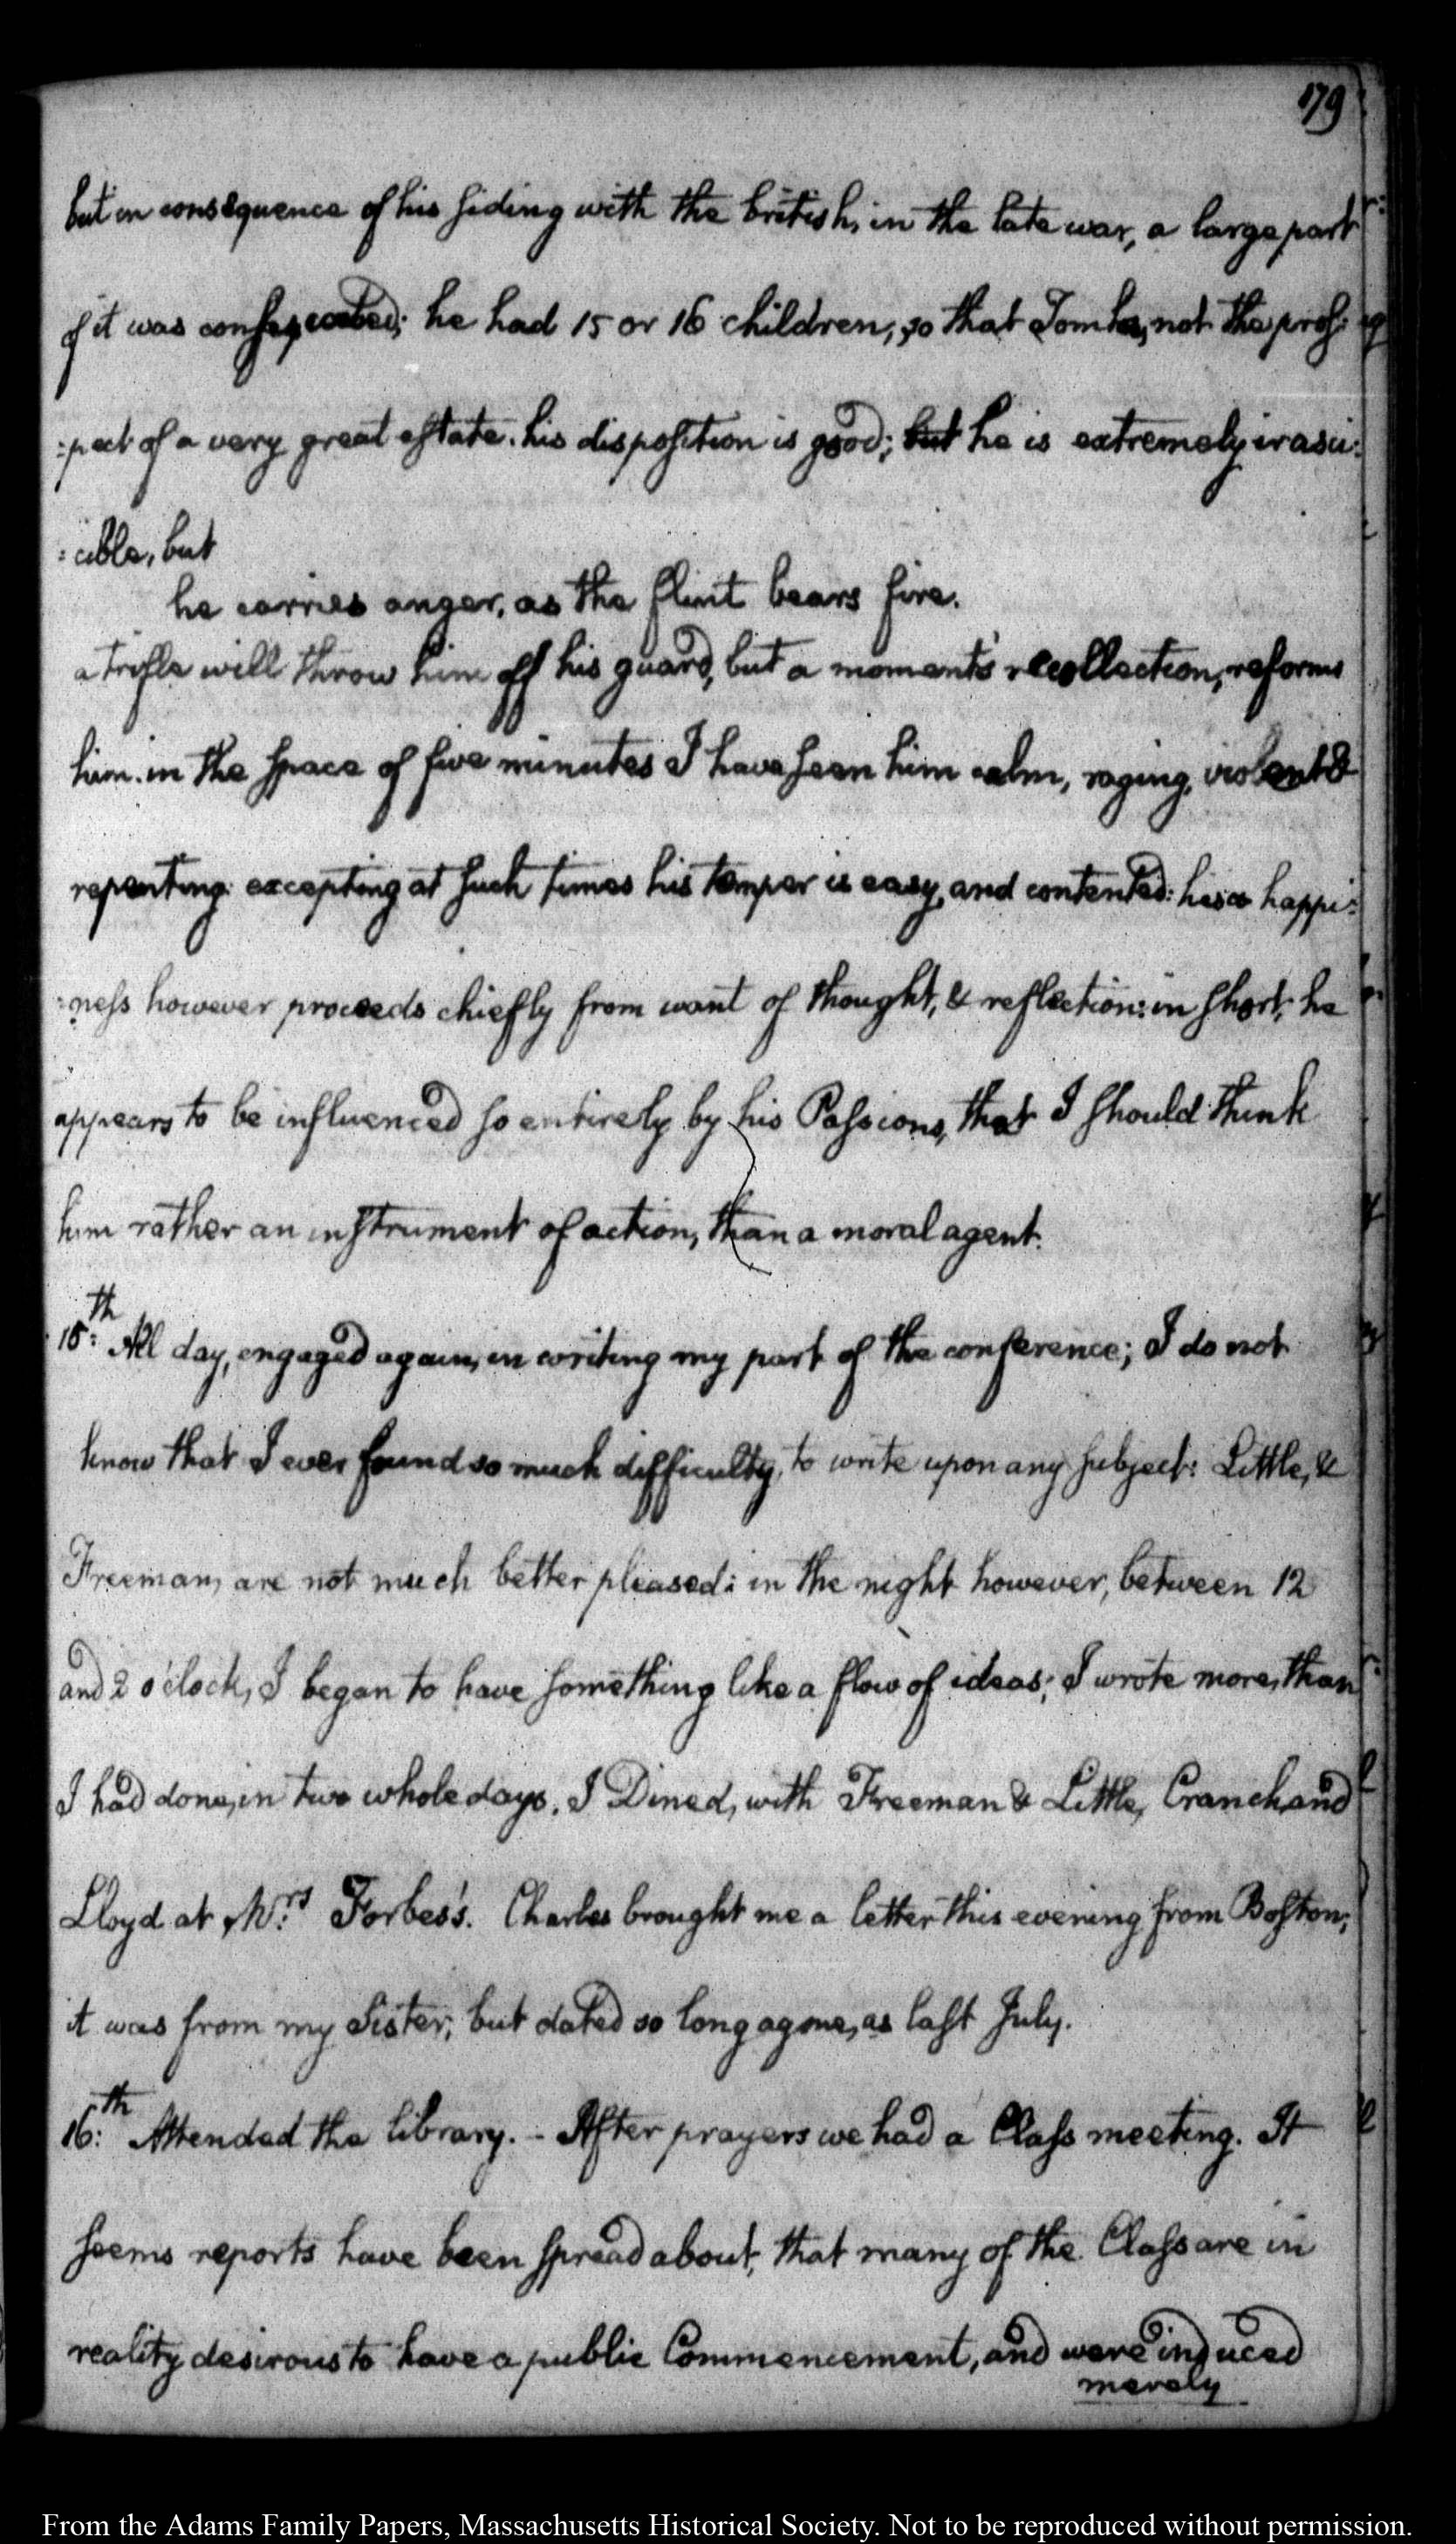 179
but in consequence of his siding with the british, in the late war, a large part
of it was confiscated; he had 15 or 16 children, so that Tom has, not the pros:
:pect of a very great estate. his disposition is good; but he is extremely irasci:
:cible, but
he carries anger, as the flint bears fire.
a trifle will throw him off his guard, but a moment's recollection, reforms
him. in the space of five minutes I have seen him calm, raging, violent &
repenting: excepting at such times his temper is easy, and contented: his happi:
:ness however proceeds chiefly from want of thought, & reflection: in short, he
appears to be influenced so entirely by his Passions, that I should think
him rather an instrument of action, than a moral agent.
15:th All day, engaged again, in writing my part of the conference; I do not
know that I ever found so much difficulty, to write upon any subject: Little, &
Freeman, are not much better pleased: in the night however, between 12
and 2 o'clock, I began to have something like a flow of ideas; I wrote more, than
I had done, in two whole days. I Dined, with Freeman & Little, Cranch, and
Lloyd at Mrs. Forbes's. Charles brought me a letter this evening from Boston;
it was from my Sister; but dated so long agone, as last July.
16:th Attended the library. - After prayers we had a Class meeting. It
seems reports have been spread about, that many of the Class are in
reality desirous to have a public Commencement, and were induced
merely
From the Adams Family Papers, Massachusetts Historical Society. Not to be reproduced without permission.